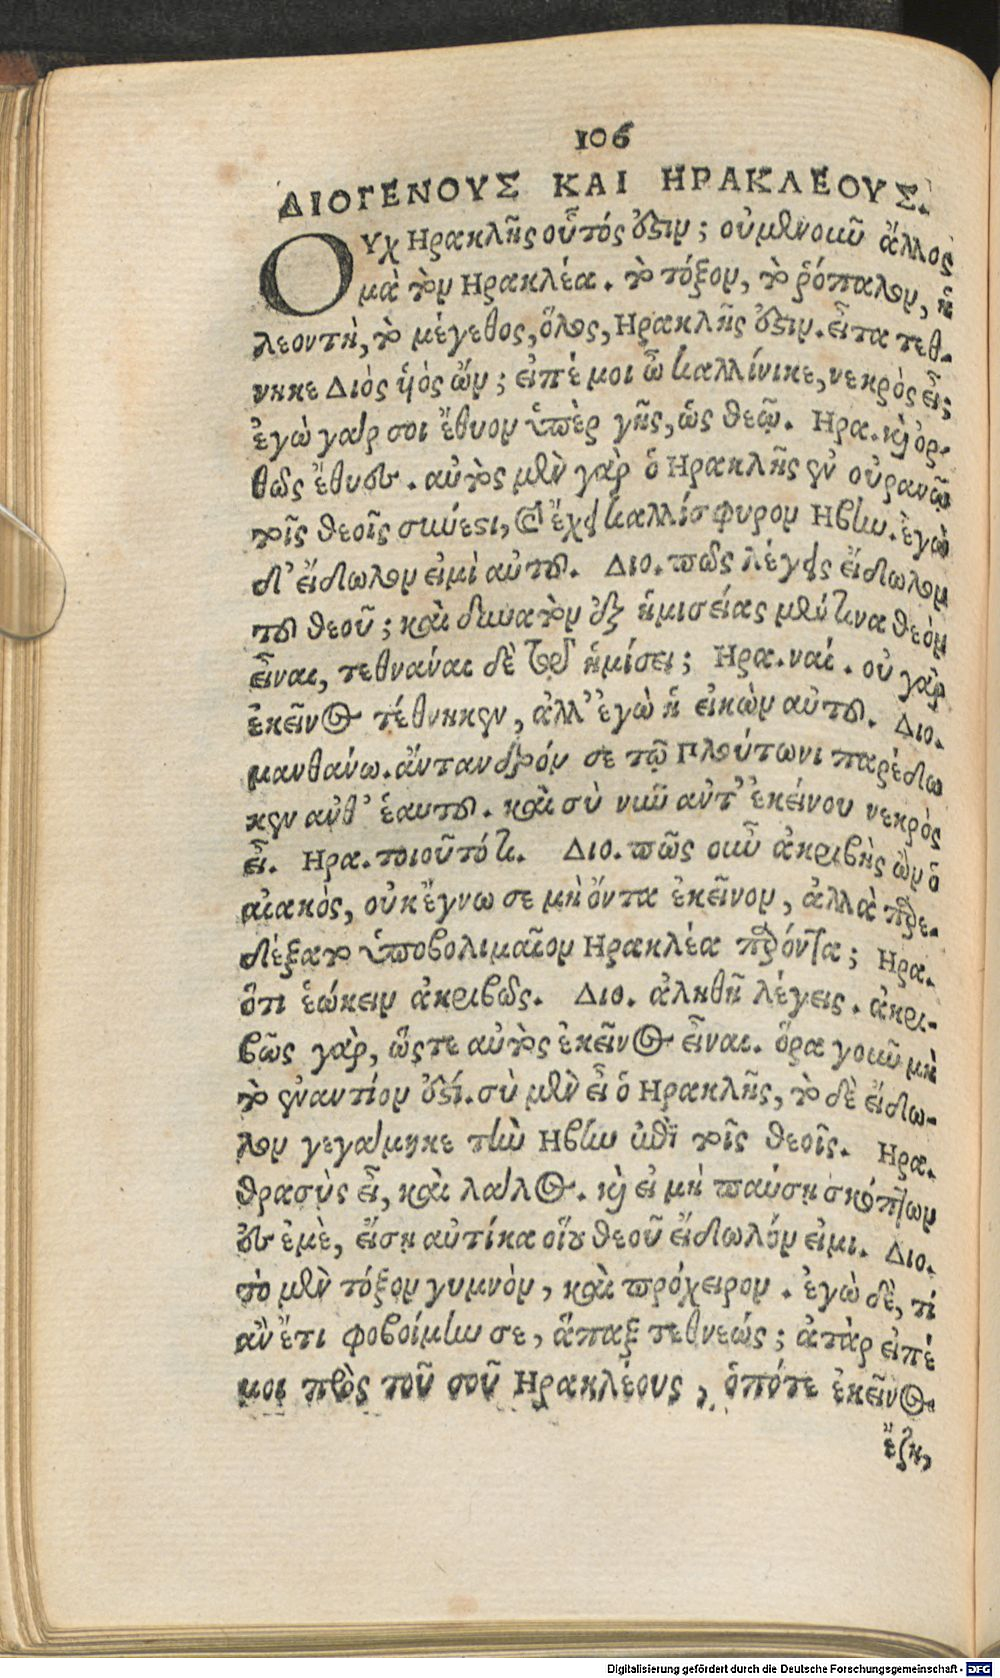 106
ΔΙΟΓΕΝΟΥΣ ΚΑΙ ΗΡΑΚΛΕΟΥΣ.
Ουχ Ηρακλῆς οὗτός ὅστιν; οὐμενοιῦ ἄλλος
μὰ τὸν Ηρακλέα. τὸ τόξον, τὸ ῥόπαλον, ἡ
λεοντὴ, τὸ μέγεθος, ὅλος, Ηρακλῆς ὅστιν. εἶτα τεθ-
νηκε Διὸς ὑὸς ὤν; εἰπέ μοι ὦ καλλίνικε, νεκρὸς εἶ;
ἐγὼ γάρ σοι ἔθυον ὑπὲρ γῆς, ὡς θεῷ. Ηρα. κὶ ὀρ-
θῶς ἔθυες. αὐτὸς μὲν γὰρ ὁ Ηρακλῆς ἐν οὐρανῷ
τοῖς θεοῖς σύνεστι, καὶ ἔχει καλλίσφυρον Ηβην. ἐγὼ
δ' εἴδωλον εἰμὶ αὐτοῦ. Διο. πῶς λέγεις εἴδωλον
τοῦ θεοῦ; καὶ δυνατὸν ἐξ ἡμισείας μέν τινα θεὸν
εἶναι, τεθνάναι δὲ τῷ ἡμίσει; Ηρα. ναί. οὐ γάρ
ἐκεῖνος τέθνηκεν, ἀλλ' ἐγὼ ἡ εἰκὼν αὐτοῦ. Διο.
μανθάνω. ἄντανδρόν σε τῷ Πλούτωνι παρέδω
κεν αὐθ' ἑαυτοῦ. καὶ σὺ νῦν αὐτ' ἐκείνου νεκρὸς
εἶ. Ηρα. τοιοῦτό τι. Διο. πῶς οὖν ἀκριβὴς ὢν ὁ
αἰακὸς, οὐκ ἔγνω σε μὴ ὄντα ἐκεῖνον, ἀλλὰ παρε-
δέξατο ὑποβολιμαῖον Ηρακλέα παρόντα; Ηρα.
ὅτι ἐῴκειν ἀκριβῶς. Διο. ἀληθῆ λέγεις. ἀκρι-
βῶς γὰρ, ὥστε αὐτὸς ἐκεῖνος εἶναι. ὅρα γοῦν μὴ
τὸ ἐναντίον ἐστί. σὺ μὲν εἶ ὁ Ηρακλῆς, τὸ δὲ εἴδω-
λον γεγάμηκε τὴν Ηβην παρὰ τοῖς θεοῖς. Ηρα.
θρασὺς εἶ, καὶ λάλος. κὶ εἰ μὴ παύσῃ σκώπτων
ἐς ἐμὲ, εἴσῃ αὐτίκα οἵου θεοῦ εἴδωλόν εἰμι. Διο.
τὸ μὲν τόξον γυμνὸν, καὶ πρόχειρον. ἐγὼ δὲ, τί
ἂν ἔτι φοβοίμην σε, ἅπαξ τεθνεώς; ἀτὰρ εἰπέ
μοι πρὸς τοῦ σοῦ Ηρακλέους, ὁπότε ἐκεῖνος
ἔζη,
Digitalisierung gefördert durch die Deutsche Forschungsgemeinschaft - DFG